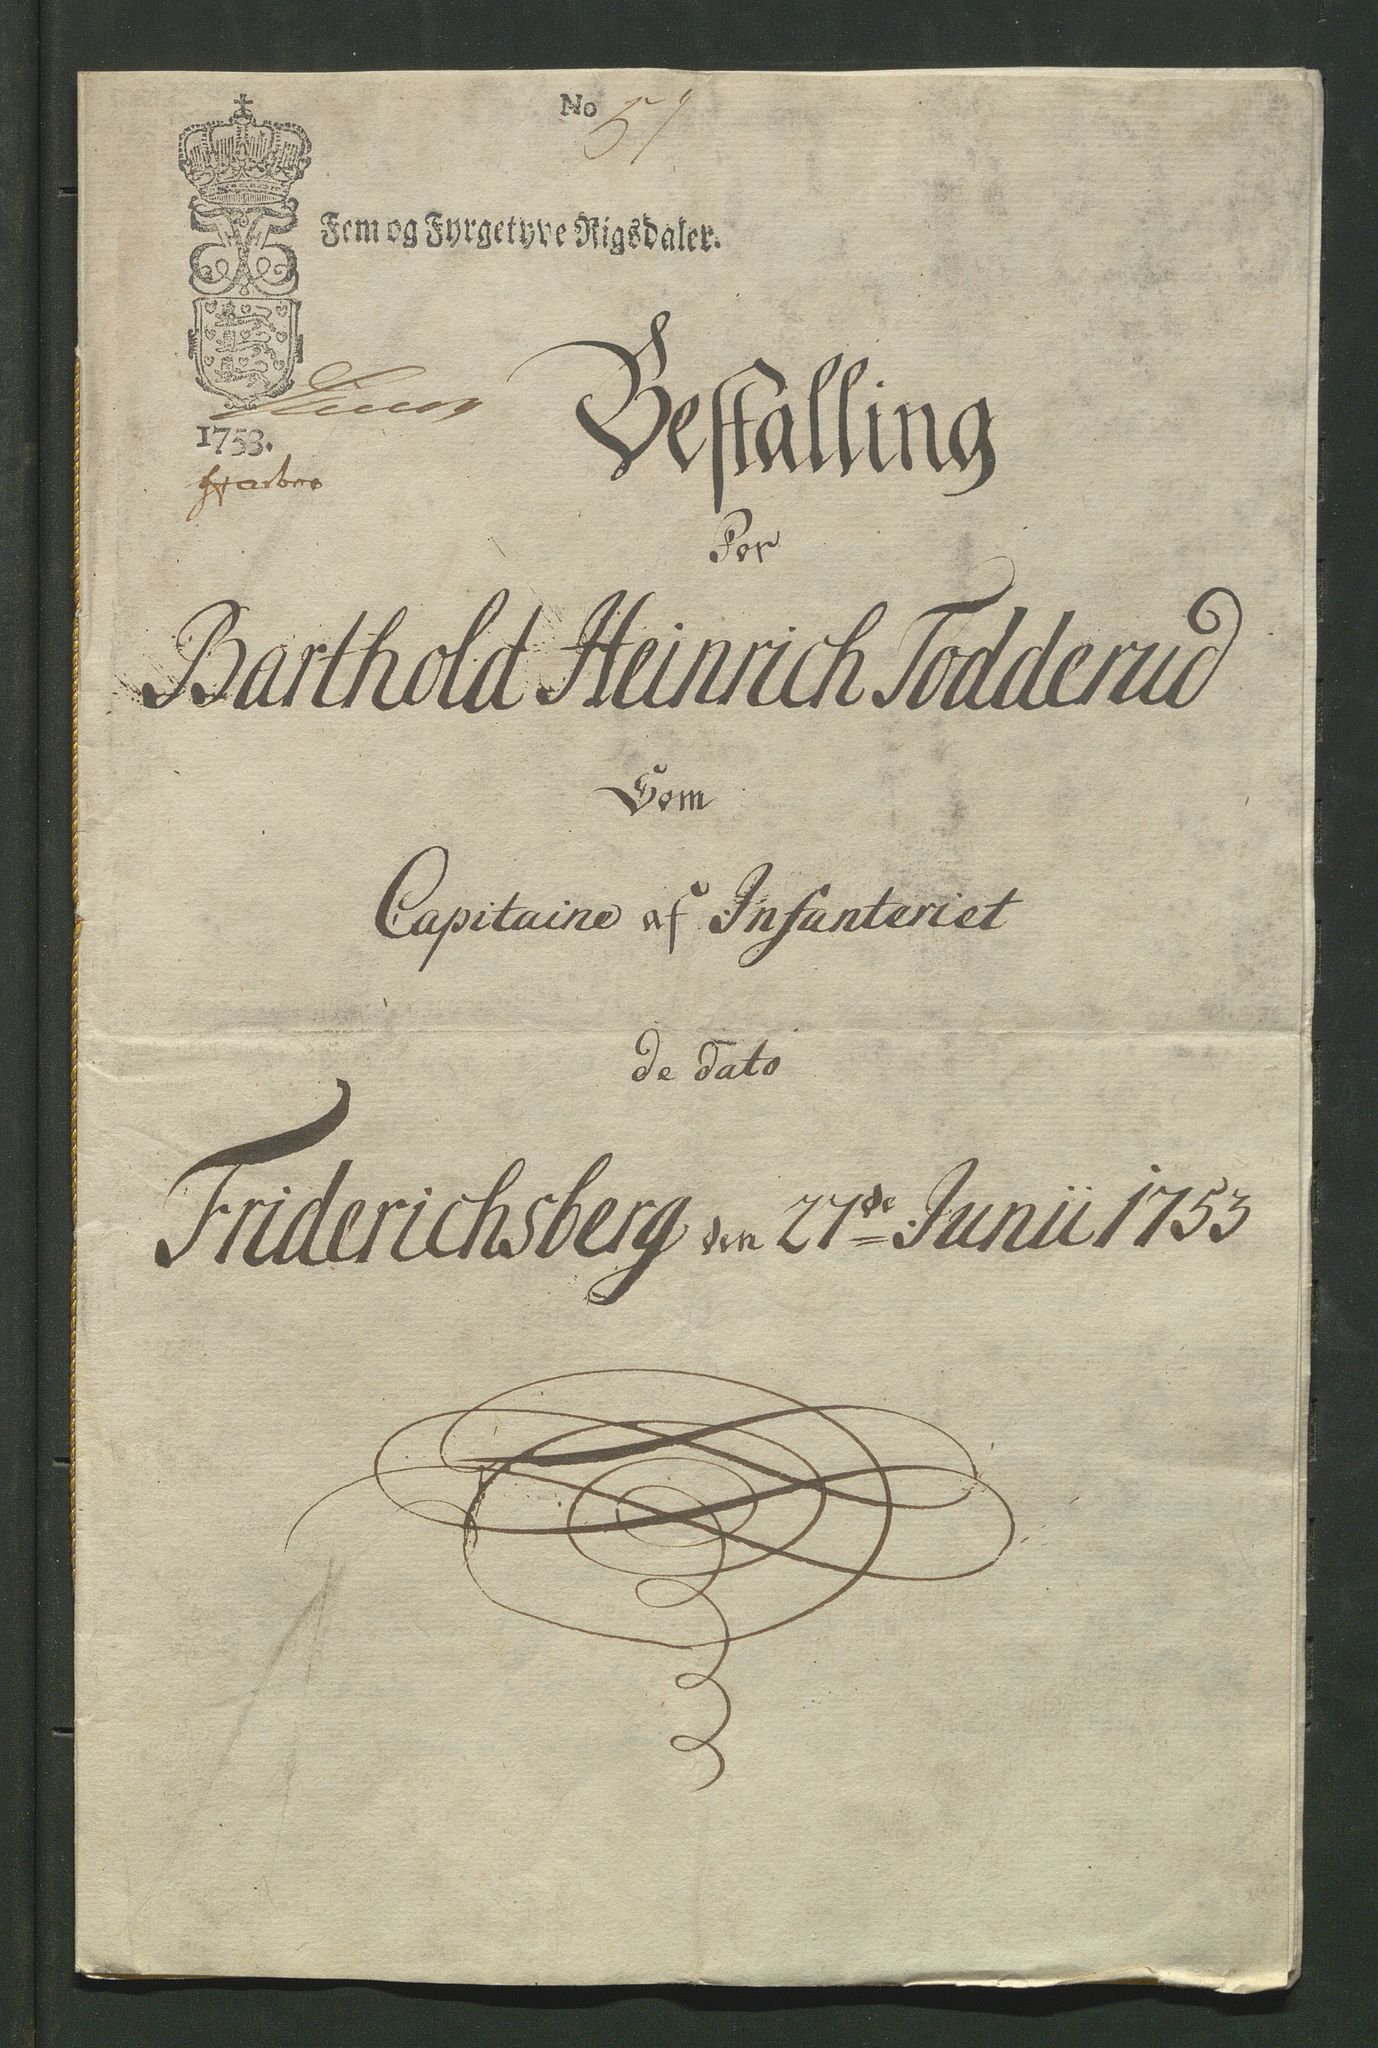 No 51
Fem og Fyrgetyve Rigsdaler.
1753.
Bestalling
For
Barthold Heinrich Todderud
Som
Capitaine af Infanteriet
de dato
Friderichsberg den 27de Junii 1753